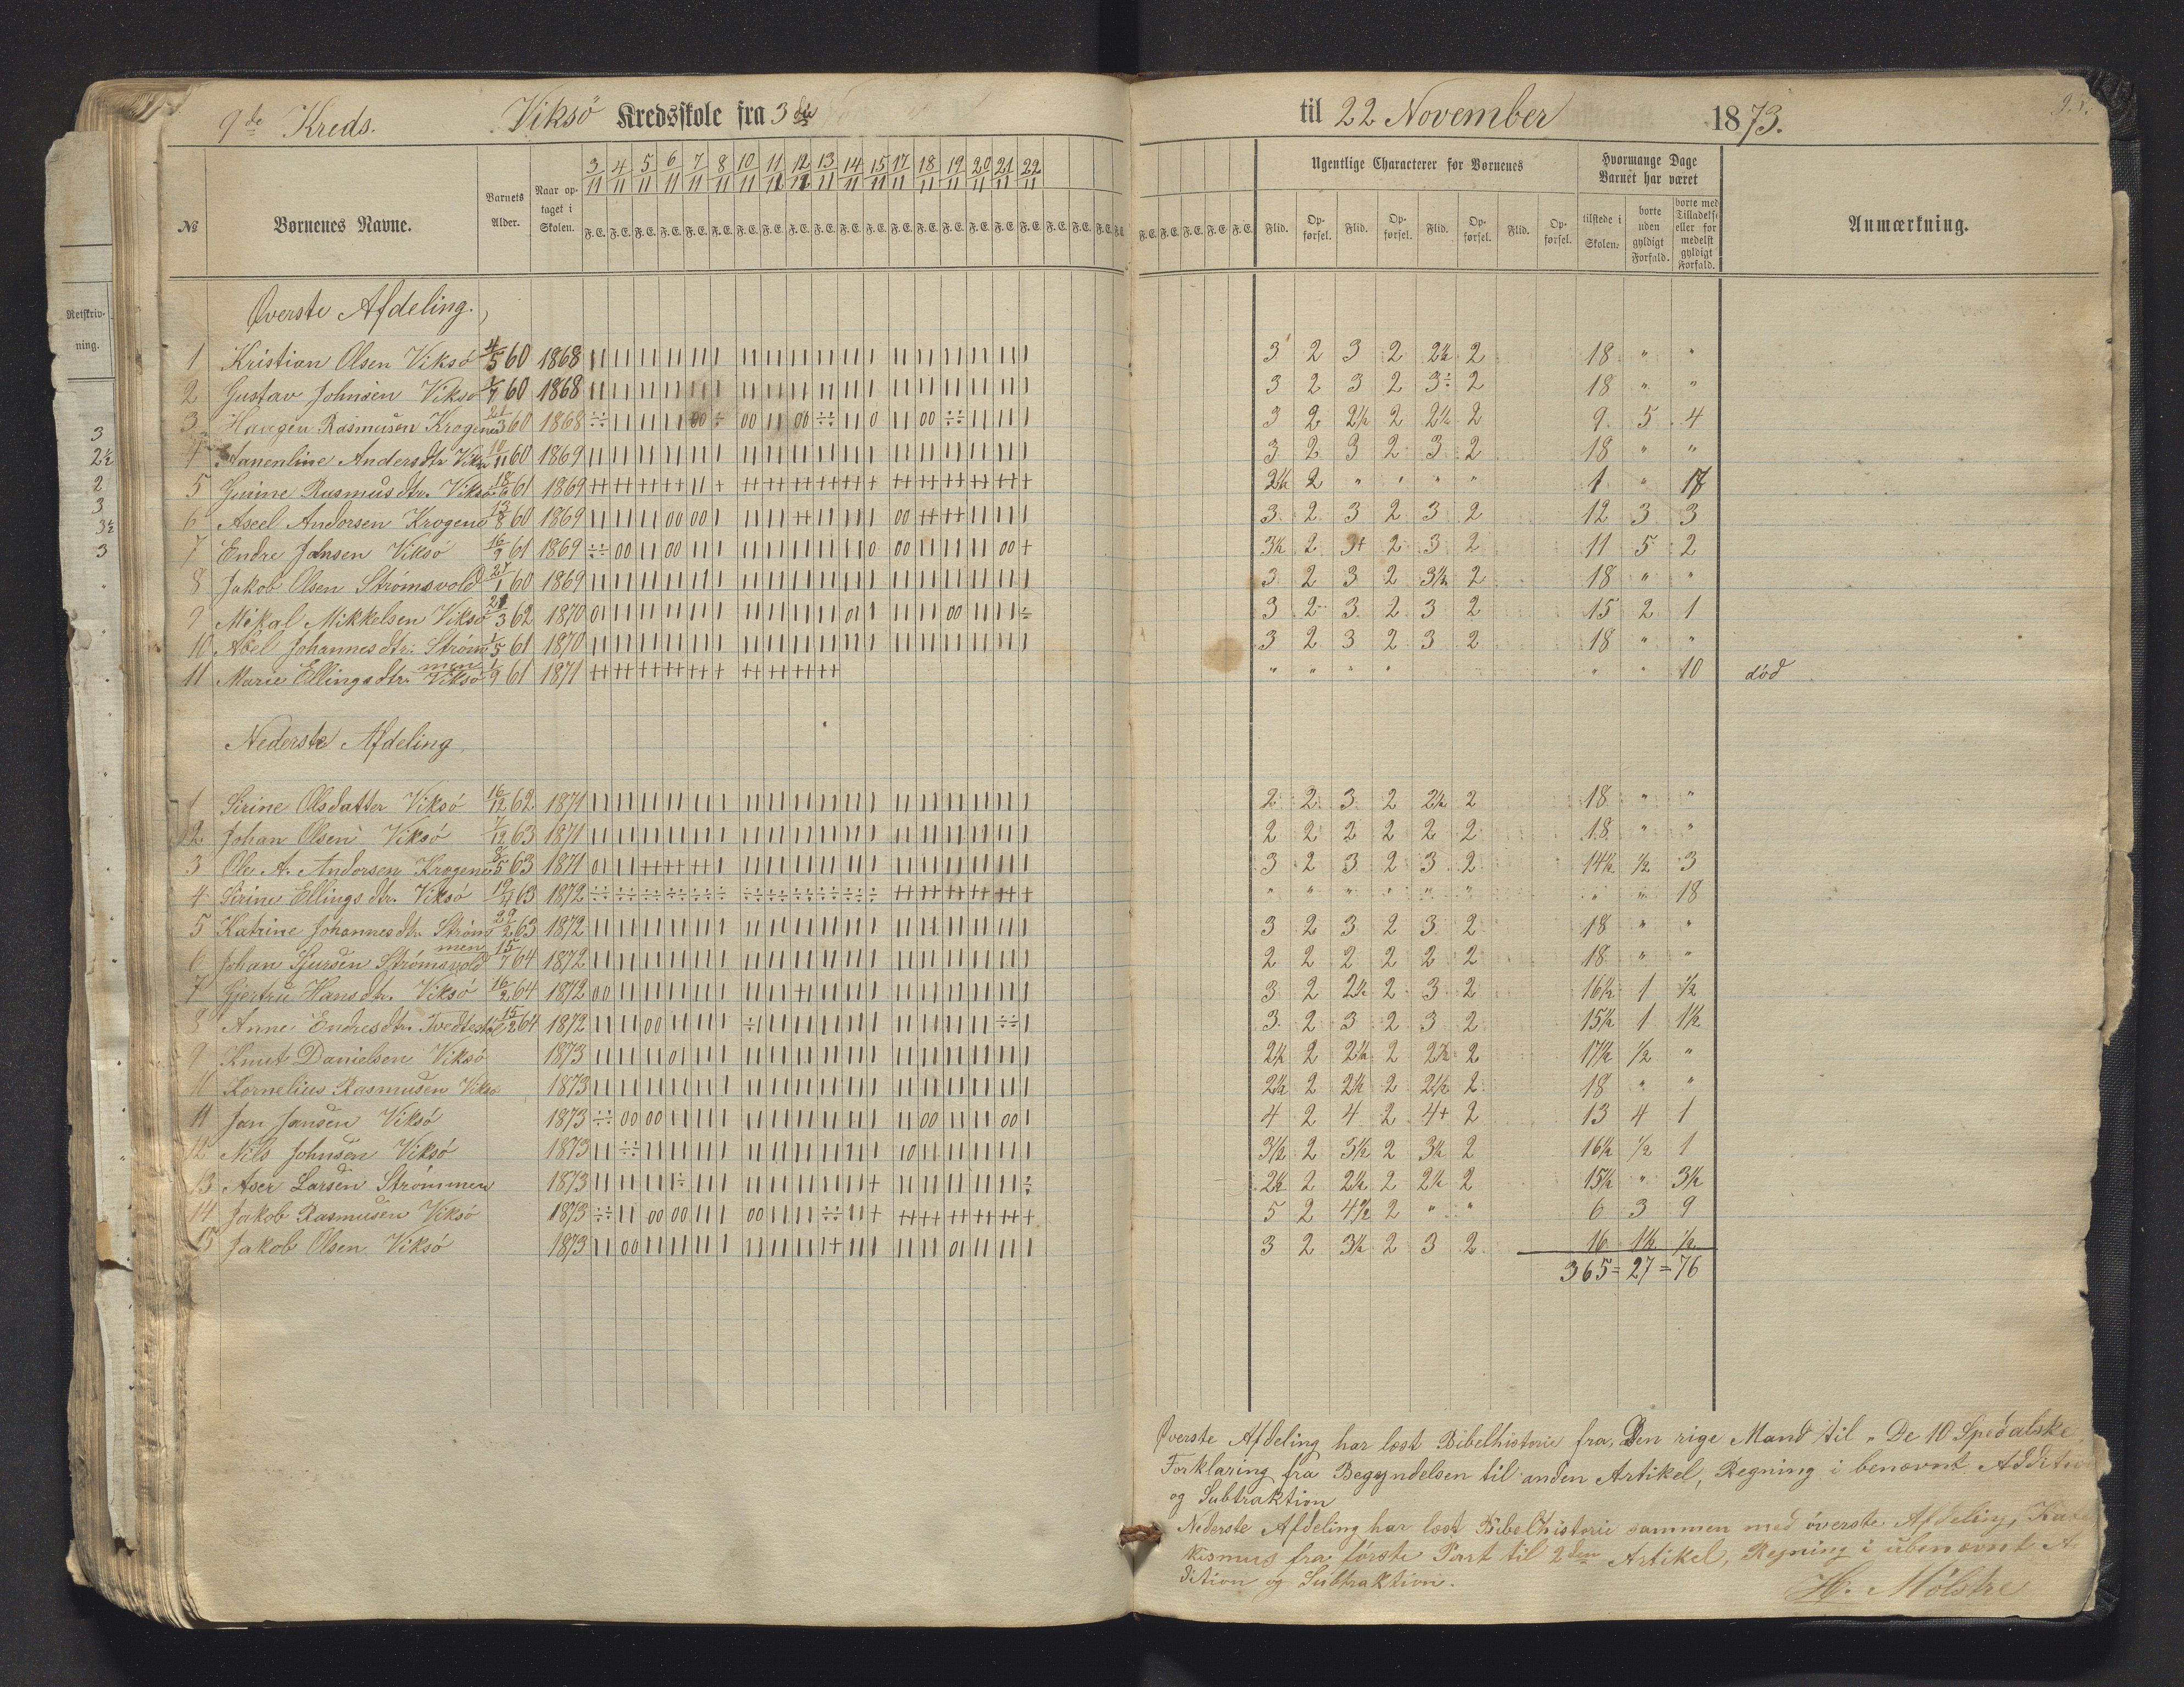 9de Kreds. Viksö Kredsskole fra 3die til 22 November 1873.
№ Børnenes Navne. Barnets Alder. Naar optaget i Skolen. 3/11 4/11 5/11 6/11 7/11 8/11 10/11 11/11 12/11 13/11 14/11 15/11 17/11 18/11 19/11 20/11 21/11 22/11
F. E. F. E. F. E. F. E. F. E. F. E. F. E. F. E. F. E. F. E. F. E. F. E. F. E. F. E. F. E. F. E. F. E. F. E. F. E. F. E. F. E.
Ugentlige Characterer for Børnenes Hvormange Dage Barnet har været
Flid. Opførsel. Flid. Opførsel. Flid. Opførsel. Flid. Opførsel. tilstede i Skolen: borte uden gyldigt Forfald. borte med Tilladelse eller formedelst gyldigt Forfald. Anmærkning.
Retskrivning.
3
2½
2
3
3½
3
Øverste Afdeling.
1 Kristian Olsen Viksö 4/5 60 1868 3 2 3 2 2½ 2 18 " "
2 Gustav Johnsen Viksö 1/7 60 1868 3 2 3 2 3÷ 2 18 " "
3 Haagen Rasmusen Krogenes 21/3 60 1868 3 2 2½ 2 2½ 2 9 5 4
4 Hanenline Andersdtr Viksö 10/11 60 1869 3 2 3 2 3 2 18 " "
5 Gurine Rasmusdtr. Viksö 18/6 61 1869 2½ 2 " " " " 1 " 17
6 Aseel Andersen Krogene 13/8 60 1869 3 2 3 2 3 2 12 3 3
7 Endre Johnsen Viksö 16/9 61 1869 3½ 2 3+ 2 3 2 11 5 2
8 Jakob Olsen Strömsvold 27/1 60 1869 3 2 3 2 3½ 2 18 " "
9 Mikal Mikkelsen Viksö 21/3 62 1870 3 2 3 2 3 2 15 2 1
10 Abel Johannesdtr. Strömmen 1/5 61 1870 3 2 3 2 3 2 18 " "
11 Marie Ellingsdtr. Viksö 1/9 61 1871 " " " " " " 10 död
Nederste Afdeling,
1 Sirine Olsdatter Viksö 16/12 62 1871 2 2 3 2 2½ 2 18 " "
2 Johan Olsen Viksö 7/12 63 1871 2 2 2 2 2 2 18 " "
3 Ole A. Andersen Krogene 8/5 63 1871 3 2 3 2 3 2 14½ ½ 3
4 Sirine Ellingsdtr. Viksö 63 1872 " " " " " " " " 18
5 Katrine Johannesdtr. Strömmen 29/2 63 1872 3 2 3 2 3 2 18 " "
6 Johan Sjursen Strömsvold 15/7 64 1872 2 2 2 2 2 2 18 " "
7 Gjertrue Hansdtr. Viksö 16/2 64 1872 3 2 2½ 2 3 2 16½ 1 ½
8 Anne Endresdtr. 15/2 64 1872 3 2 3 2 3 2 15½ 1 1½
9 Knut Danielsen Viksö 1873 2½ 2 2½ 2 2½ 2 17½ ½ "
10 Kornelius Rasmusen Viksö 1873 2½ 2 2½ 2 2½ 2 18 " "
11 Jan Jansen Viksö 1873 4 2 4 2 4+ 2 13 4 1
12 Nils Johnsen Viksö 1873 3½ 2 3½ 2 3½ 2 16½ ½ 1
13 Aser Larsen Strömmen 1873 2½ 2 2½ 2 2½ 2 15½ " 3½
14 Jakob Rasmusen Viksö 1873 5 2 4½ 2 " " 6 3 9
15 Jakob Olsen Viksö 1873 3 2 3½ 2 3 2 16 1½ ½
365 = 27 = 76
Øverste Afdeling har læst Bibelhistorie fra, Den rige Mand til „De 10 Spedalske
Forklaring fra Begyndelsen til anden Artikel, Regning i benævnt Addition
og Subtraktion
Nederste Afdeling har læst Bibelhistorie sammen med överste Afdeling, Kate
kismus fra förste Part til 2den Artikel, Regning i übenævnt A
dition og Subtraktion.
H. Mölstre